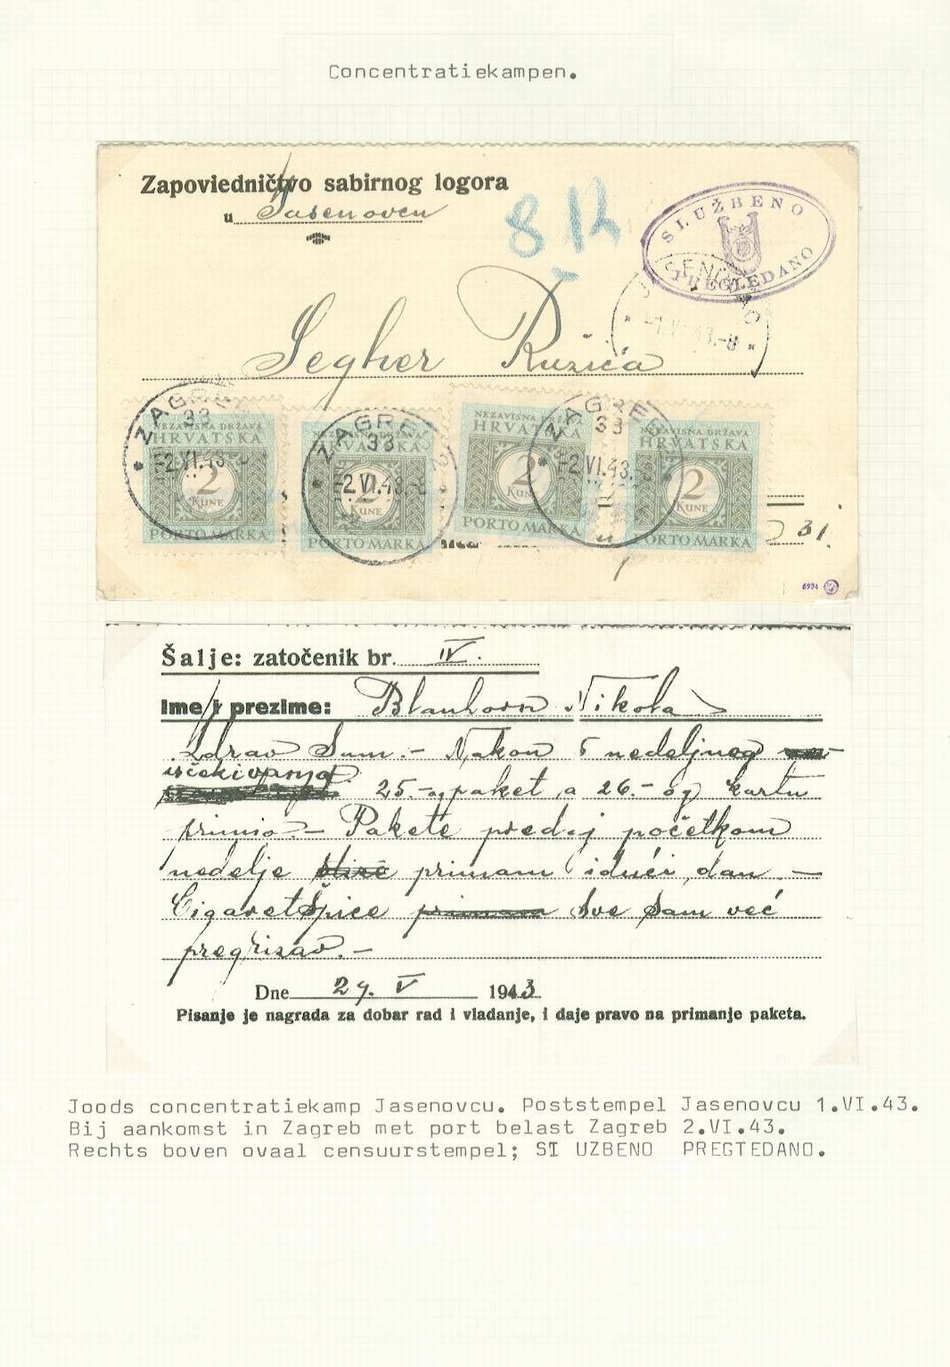 Concentratiekampen.
Zapovjedničtvo sabirnog logora
u Jasenovcu
8 12
SLUŽBENO
PREGLEDANO
Segher Ružića
ZAGREB 2
33
-2.VI.43
NEZAVISNA DRŽAVA
HRVATSKA
2
KUNE
PORTO MARKA
ZAGREB 2
33
-2.VI.43
NEZAVISNA DRŽAVA
HRVATSKA
2
KUNE
PORTO MARKA
NEZAVISNA DRŽAVA
HRVATSKA
2
KUNE
PORTO MARKA
ZAGREB
33
-2.VI.43
NEZAVISNA DRŽAVA
HRVATSKA
2
KUNE
PORTO MARKA
31.
Šalje: zatočenik br. IV.
Ime i prezime: Blauhorn Nikola
Zdrav Sam.- Nakon 5 nedeljnog
isčekivanja 25.-og paket, a 26.-og kartu
primio.- Pakete predaj početkom
nedelje primam idući dan.-
Cigaretšpice sve sam već
pregrizao.-
Dne 29. V 1943
Pisanje je nagrada za dobar rad i vladanje, i daje pravo na primanje paketa.
Joods concentratiekamp Jasenovcu. Poststempel Jasenovcu 1.VI.43.
Bij aankomst in Zagreb met port belast Zagreb 2.VI.43.
Rechts boven ovaal censuurstempel; SI UZBENO PREGTEDANO.